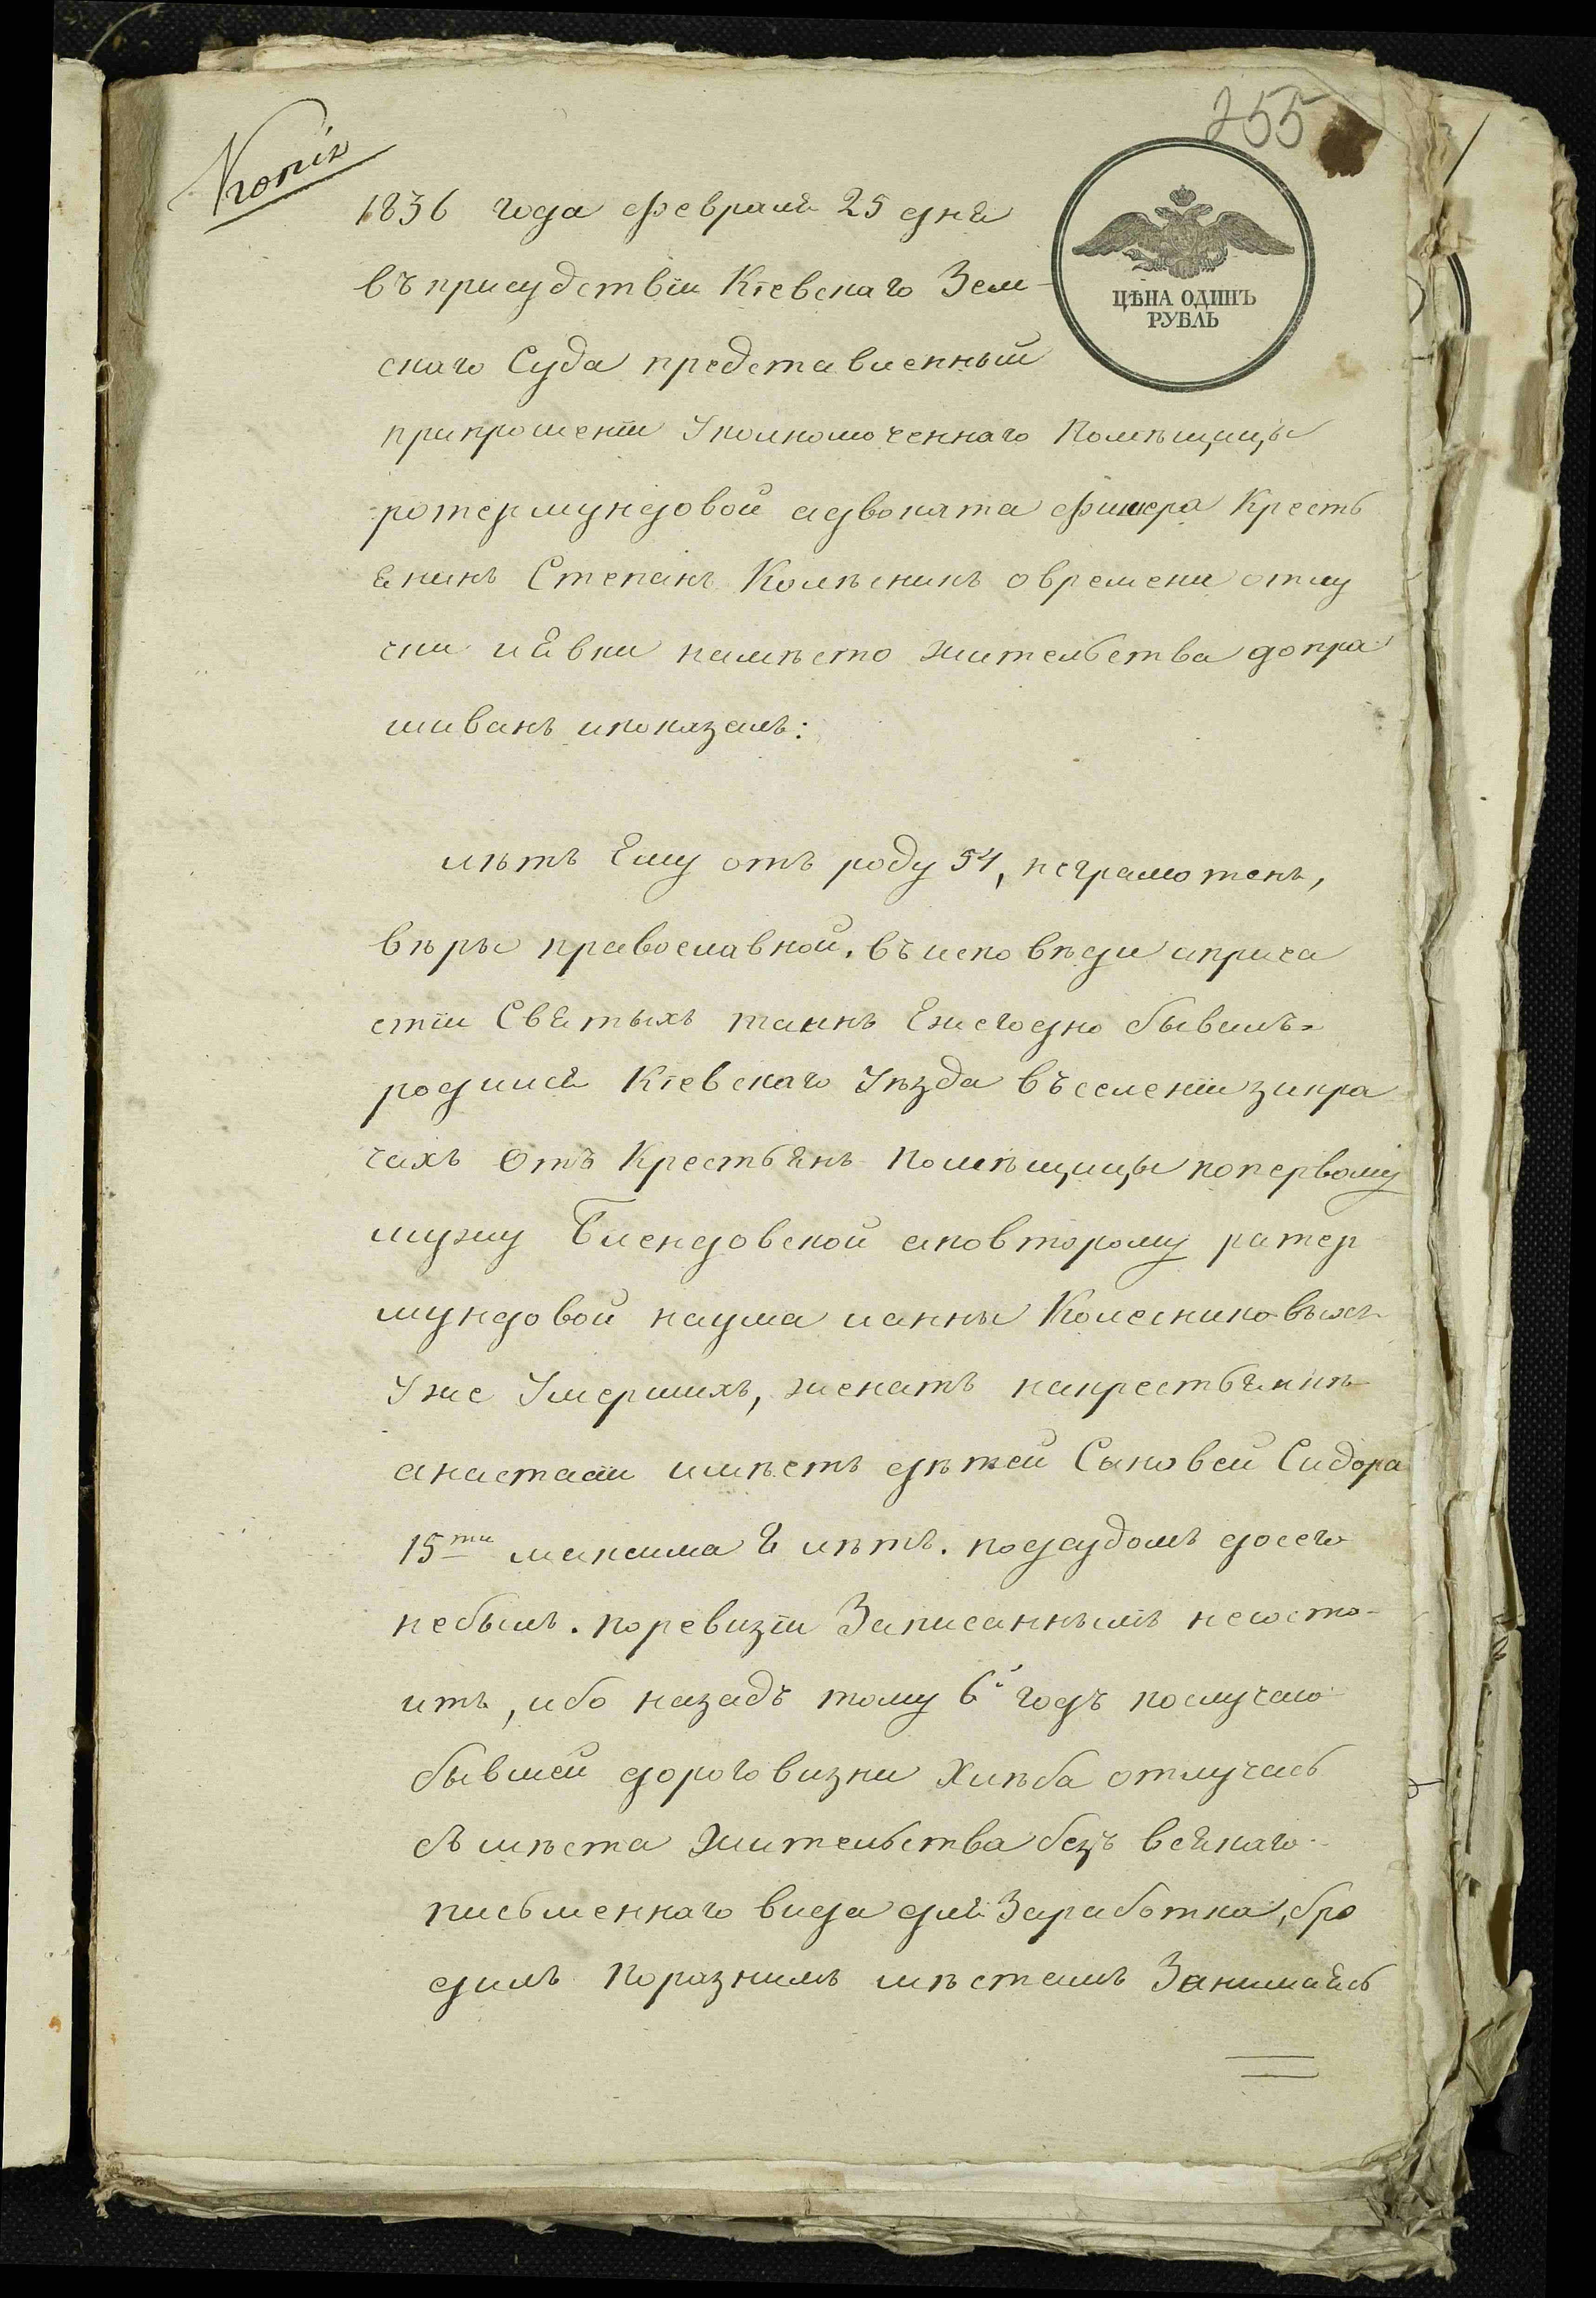 255
Копія
ЦѢНА ОДИНЪ
РУБЛЬ
1836 года февраля 25 дня
въ присудствіи Кіевскаго Зем-
скаго Суда представленный
при прошеніи Уполномоченнаго Помѣщицы
ротермундовой адвоката фишера Кресть
янинъ Степанъ Колѣсникъ о времени отлу
чки и явки на мѣсто жительства допра
шиванъ и показалъ:
лѣтъ Ему отъ роду 54, неграмотенъ,
вѣры православной, въ исповѣди и прича
стіи Святыхъ таинъ Ежегодно бывалъ
родился Кіевскаго Уѣзда въ селеніи зикра
чахъ Отъ Крестьянъ Помѣщицы по первому
мужу Блендовской а по второму ратер
мундовой наума и анны Колесниковыхъ
Уже Умершихъ, женатъ на крестьянкѣ
анастасіи имѣетъ дѣтей Сыновей Сидора
15ти максима 8 лѣтъ. подсудомъ досего
небылъ. по ревизіи Записаннымъ несосто-
итъ, ибо назадъ тому 6й годъ послучаю
бывшей дороговизни Хлѣба отлучась
съ мѣста Жительства безъ всякаго
письменнаго вида для Заработка, бро
дилъ По разнимъ мѣстамъ Занимаясь